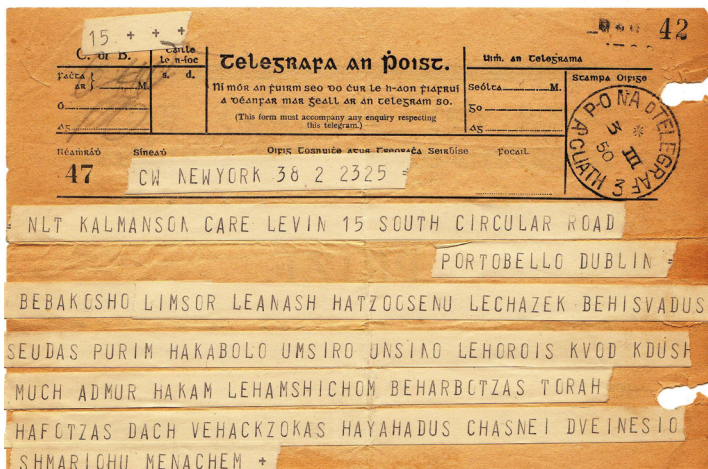 15 + + +
42
C. or B.
Telegrafa an Ṗoist.
Uiṁ. an Telegrama
s. d.
Ní mór an ḟuirm seo do ċur le h-aon ḟiafruí
a déanfar mar ġeall ar an telegram so.
(This form must accompany any enquiry respecting
this telegram.)
M.
Seolta M.
Stampa Oifige
P-O NA DTELEGRAF
3 III 50
47
Síneaḋ
Focail
CW NEWYORK 38 2 2325 =
= NLT KALMANSON CARE LEVIN 15 SOUTH CIRCULAR ROAD
PORTOBELLO DUBLIN =
BEBAKOSHO LIMSOR LEANASH HATZOOSENU LECHAZEK BEHISVADUS
SEUDAS PURIM HAKABOLO UMSIRO UNSINO LEHOROIS KVOD KDUSH
MUCH ADMUR HAKAM LEHAMSHICHOM BEHARBOTZAS TORAH
HAFOTZAS DACH VEHACKZOKAS HAYAHADUS CHASNEI DVEINESIO
SHMARIOHU MENACHEM +